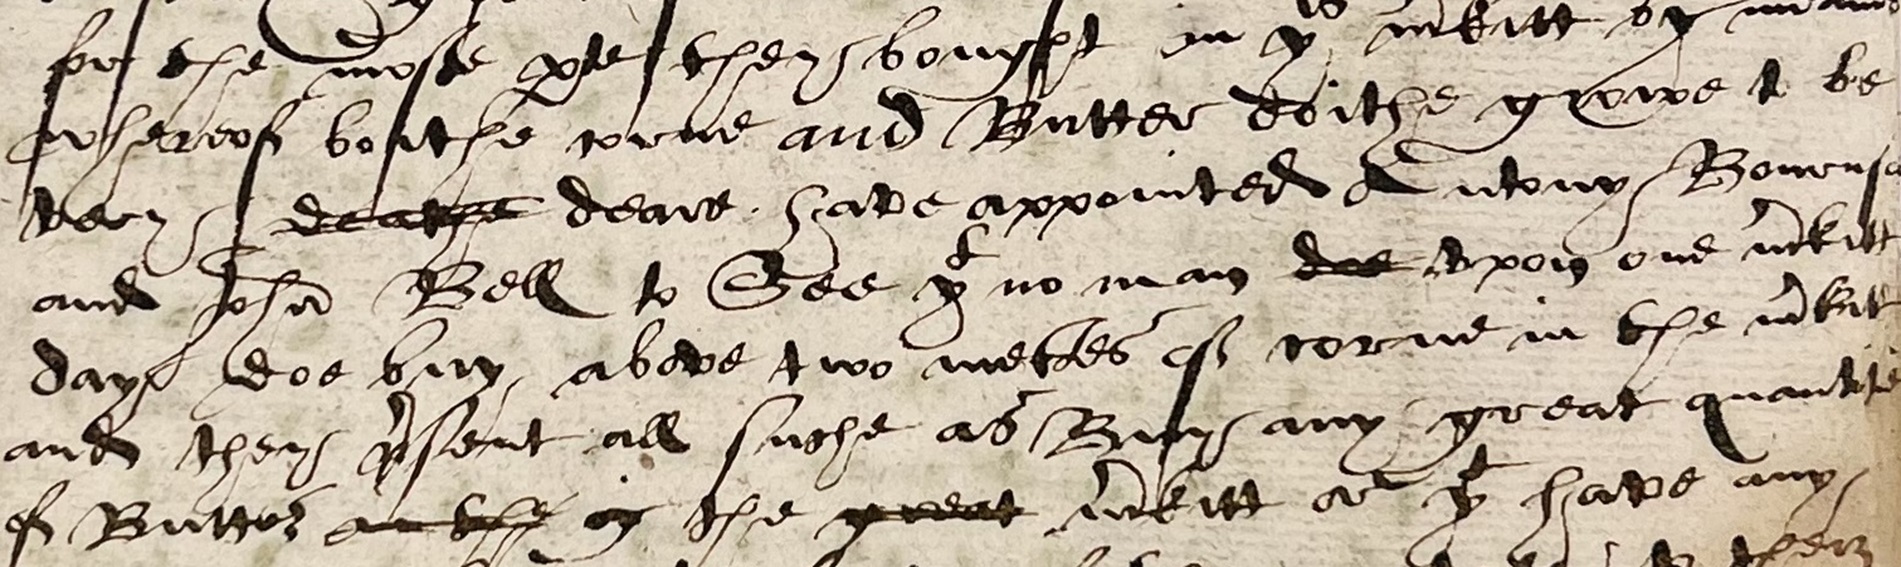 for the moste pte they bought in ye mkitt by means
whereof boithe corne and Butter doithe growe to be
very deathe deare have appointed Antony
and John Bell to See yt no man doe vpon one mkitt
day doe buy above two mettes of corne in the mkitt
and they psent all suche as Buy any great quantitie
of Butter in the great mkitt or yt have any